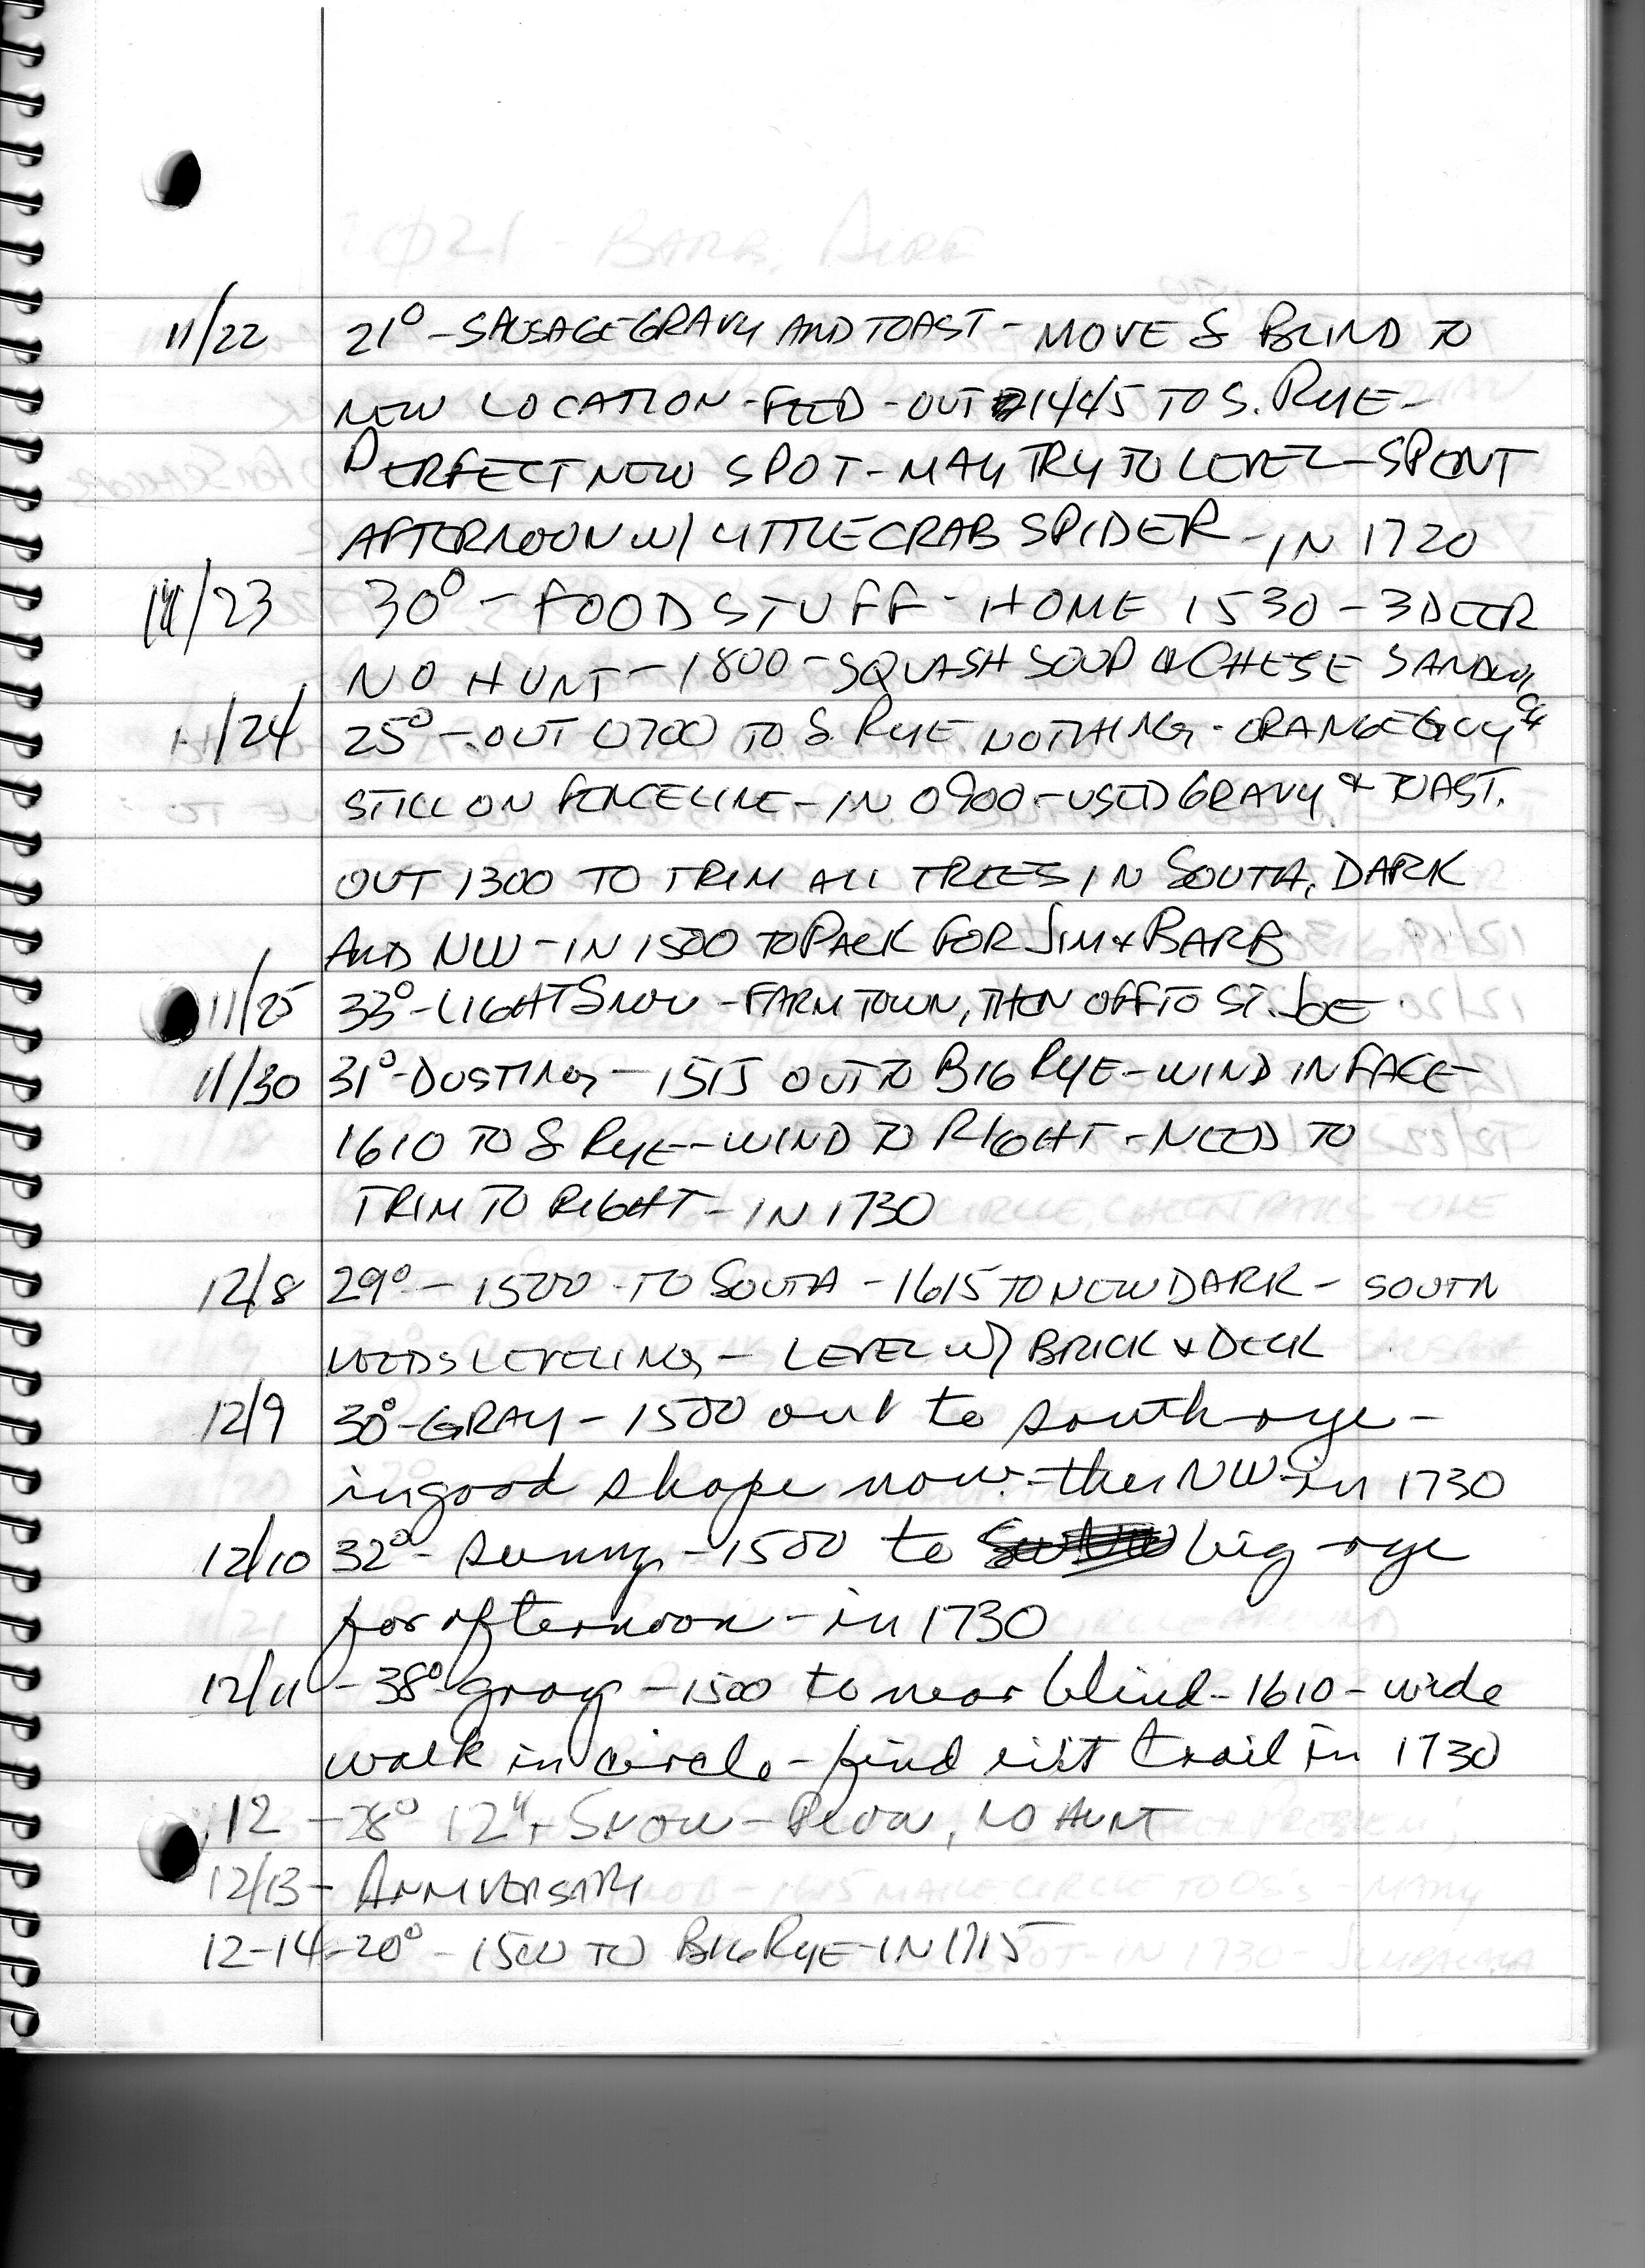 11/22 21° - SAUSAGE GRAVY AND TOAST - MOVE S BLIND TO
NEW LOCATION - FEED - OUT 1445 TO S. RYE -
PERFECT NEW SPOT - MAY TRY TO LEVEL - SPENT
AFTERNOON W/ LITTLE CRAB SPIDER - IN 1720
11/23 30° - FOOD STUFF - HOME 1530 - 3 DEER
NO HUNT - 1800 - SQUASH SOUP & CHEESE SANDWICH
11/24 25° - OUT 0700 TO S RYE NOTHING - ORANGE GUY
STILL ON FENCELINE - IN 0900 - USED GRAVY & TOAST.
OUT 1300 TO TRIM ALL TREES IN SOUTH, DARK
AND NW - IN 1500 TO PACK FOR JIM & BARB
11/25 33° - LIGHT SNOW - FARM TOWN, THEN OFF TO ST. JOE
11/30 31° - DUSTING - 1515 OUT TO BIG RYE - WIND IN FACE -
1610 TO S RYE - WIND TO RIGHT - NEED TO
TRIM TO RIGHT - IN 1730
12/8 29° - 1500 - TO SOUTH - 1615 TO NEW DARK - SOUTH
NEEDS LEVELING - LEVEL W/ BRICK & DECK
12/9 30° - GRAY - 1500 out to south rye -
in good shape now - then NW - in 1730
12/10 32° - sunny - 1500 to big rye
for afternoon - in 1730
12/11 - 38° gray - 1500 to near blind - 1610 - wide
walk in circle - find trail in 1730
12 - 28° 12"+ SNOW - PLOW, NO HUNT
12/13 - ANNIVERSARY
12-14 - 20° - 1500 TO BIG RYE - IN 1715